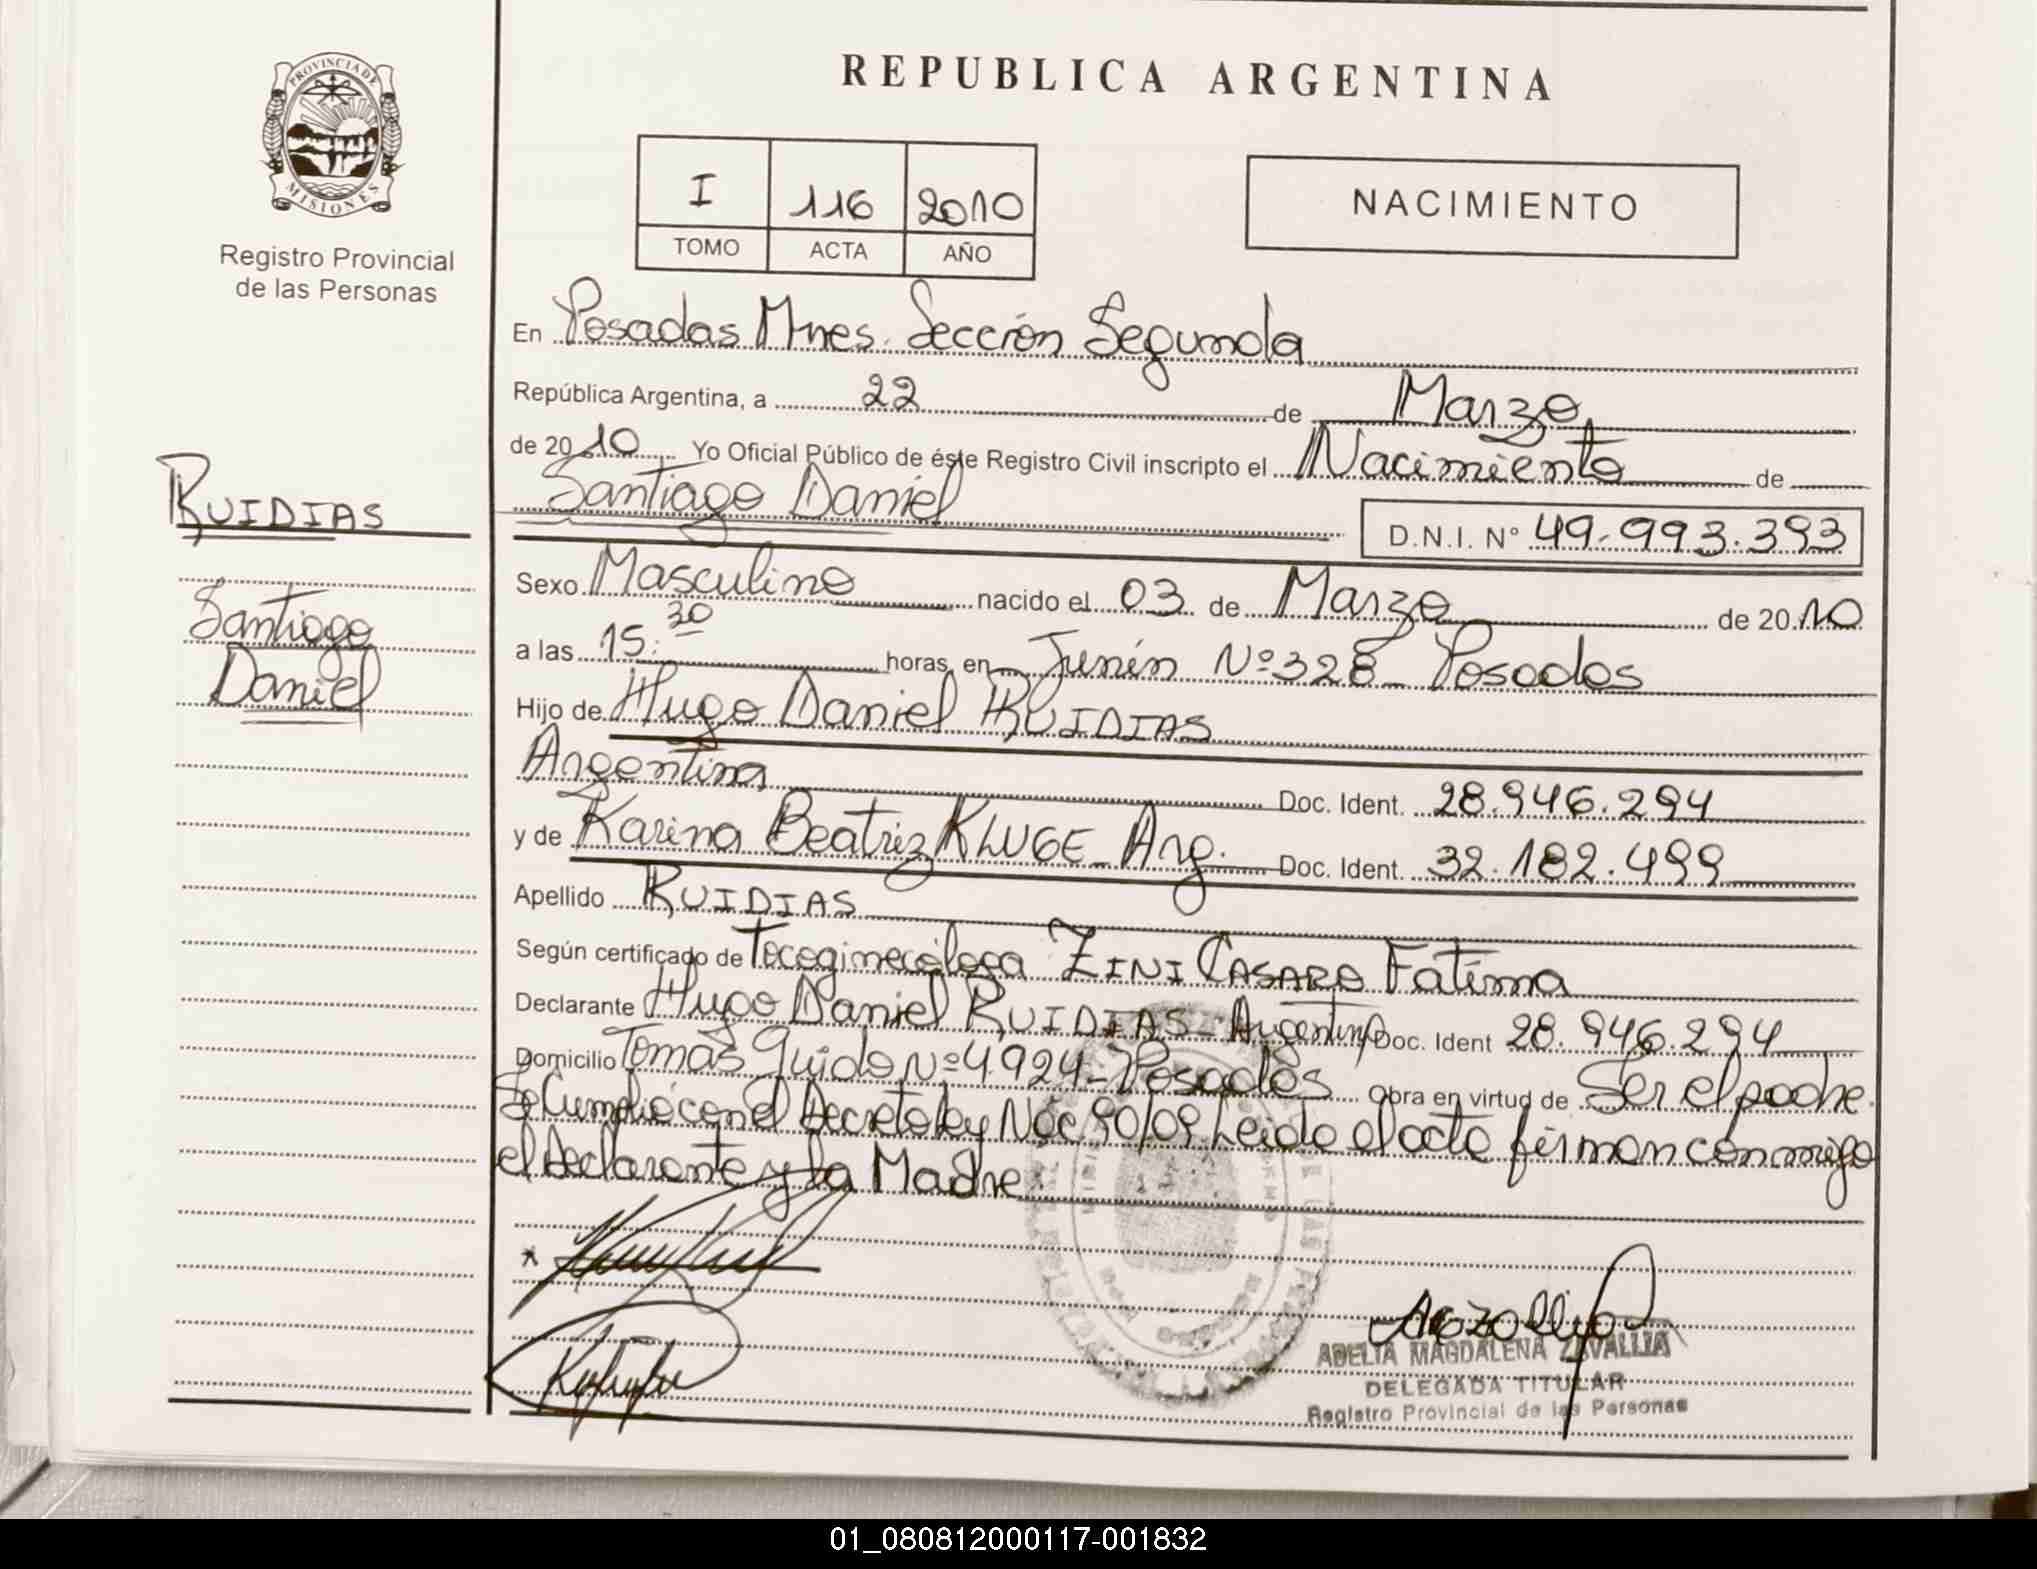 PROVINCIA DE
MISIONES
Registro Provincial
de las Personas
RUIDIAS
Santiago
Daniel
REPUBLICA ARGENTINA
I 116 2010
TOMO ACTA AÑO
NACIMIENTO
En Posadas Mnes. Sección Segunda
República Argentina, a 22 de Marzo
de 2010 Yo Oficial Público de éste Registro Civil inscripto el Nacimiento de
Santiago Daniel D.N.I. Nº 49.993.393
Sexo Masculino nacido el 03 de Marzo de 2010
a las 15:30 horas, en Junín Nº 328 - Posadas
Hijo de Hugo Daniel RUIDIAS
Argentina Doc. Ident. 28.946.294
y de Karina Beatriz KLUGE - Arg. Doc. Ident. 32.182.499
Apellido RUIDIAS
Según certificado de Tocoginecóloga ZINI CASARO Fatima
Declarante Hugo Daniel RUIDIAS - Argentino Doc. Ident 28.946.294
Domicilio Tomás Guido Nº 4924 - Posadas Obra en virtud de Ser el padre.
Se Cumplió con el Decreto ley Nac 90/09. Leido el acta firman conmigo
el Declarante y la Madre.
ADELIA MAGDALENA ZAVALLIA
DELEGADA TITULAR
Registro Provincial de las Personas
01_080812000117-001832